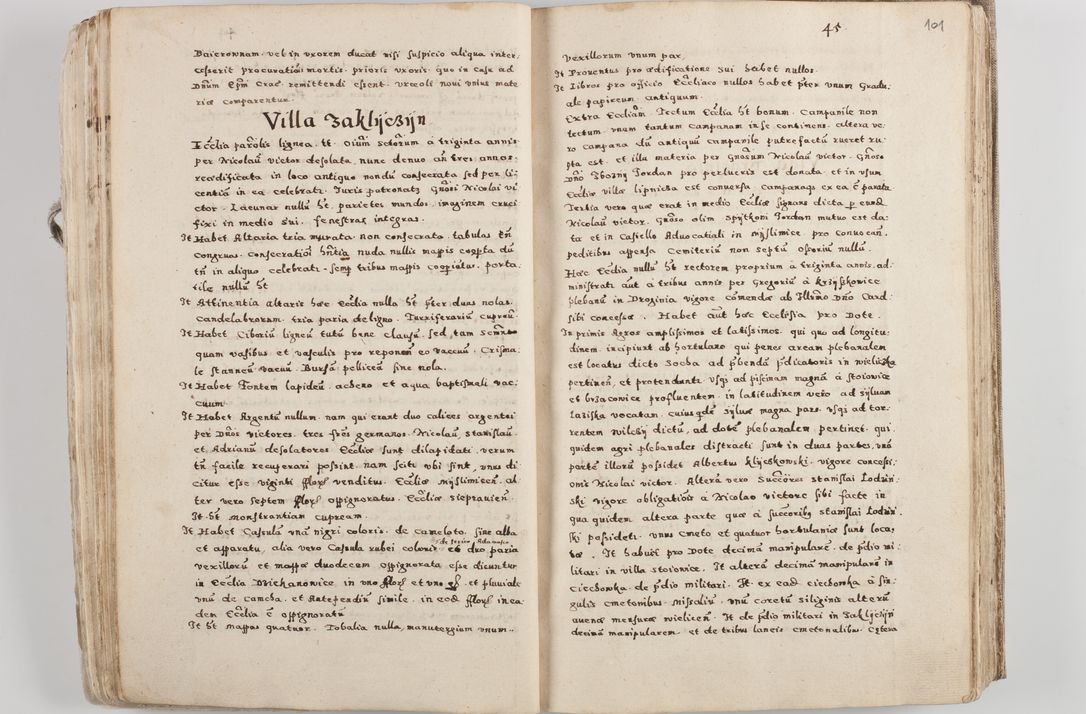 Baieronnam vel in uxorem ducat nisi suspicio aliqua inter
cesserit procuratiois mortis prioris uxoris quo in casu ad
Dnum Epm Crac: remittendi essent. urceoli novi unius mate
riae comparentur.
Villa Zaklyczyn
Ecclia parolis lignea tt. Oium Sctorum a triginta annis
per Nicolau victor desolata, nunc denuo an tres annos
reaedificata in loco antiquo nondu consecrata sed per li:
centia in ea celebrati. Juris patronats Gnosi Nicolai vi
ctor. Lacunar nullu ht. parietes mundos, imaginem cruci
fixi in medio sui. fenestras integras.
It Habet Altaria tria murata non consecrata, tabulas tn
congruas. consecratiois hntia nuda nullis mappis coopta du
tn in aliquo celebrati. semp tribus mappis coopiatur. porta
tile nullu ht
It Attinentia altaris haec Ecclia nulla ht pter duas nolas.
Candelabrorum tria paria de ligno. Turriferariu cupreu.
It Habet Ciboriu ligneu tutu bene clausu, sed tam
quam vasibus et vasculis pro reponen eo vacuu. Crisma:
le stanneu vacuu. Bursa pellicea sine nola.
It Habet Fontem lapideu, aeheno et aqua baptismali vac
cuum.
It Habet Argentu nullum nam qui erant duo calices argentei
per Dnos victores tres fres germanos Nicolau, Stanislau
et Adrianu desolatores Eccliae sunt dilapidati, verum
tn facile recuperari possint. nam scitu ubi sint, unus di
citur esse viginti flor venditus Eccliae Myslimicen. al
ter vero septem flor oppignoratus. Eccliae Siepravien.
It ht monstrantiam cupream.
It Habet Casula una nigri coloris de cameloto, sine alba
et apparatu, alia vero Casula rubei coloris et duo paria
vexilloru et mappae duodecem oppignorata esse dicuntur
in Ecclia Biechanowice in uno flor et uno gr. et pluviale
una de camcha et Antependiu simile in eod flor in ea
dem Ecclia e oppignoratu
It ht mappas quatuor. Tobalia nulla, manutergium unum
45
101
vexillorum unum par.
It Proventus pro aedificatione sui habet nullos.
It Libros pro officio Eccliaco nullos habet pter unum Gradu:
ale papireum antiquum.
Extra Eccliam Tectum Ecclia ht bonum. Campanile non
tectum, unum tantum campanam in se continens, altera ve:
ro campana du antiquu campanile putrefactu rueret ru:
pta est, et illa materia per Gnosum Nicolau victor. Gnoso
dno Jordan pro perlucris est donata, et in usum
Eccliae villae lipnicka est conversa, campanaqs ex ea e parata
Tertia vero quae erat in medio Eccliae signans dicta p eund
Nicolau victor. Gnoso olim Spytkoni Jordan mutuo est da:
ta et in Castello Advocatiali in Myslimice. pro convocan.
peditibus appensa Cemiteriu non septu osoriu nullu.
Haec Ecclia nullu ht rectorem proprium a triginta annis. ad
ministrati aut a tribus annis per Gregoriu a Krzyskowice
plebanu in Droginia vigore comendae ab Illrmo Dno Card
sibi concessae. Habet aut haec Ecclesia pro Dote.
In primis Agros amplissimos et latissimos, qui quo ad longitu:
dinem incipiunt ab hortulano qui penes aream plebanalem
est locatus dicto Socha ad pbenda pdicatoris in wieliczka
pertinen, et protendunt usqs ad piscinam magna a Stoiowice
et brzacowice profluentem in latitudinem vero ad sylvam
laziska vocatam. cuius qde sylvae magna pars usqs ad tor:
rentem wilczy dictu, ad dote plebanalem pertinet. qui
quidem agri plebanales distracti sunt in duas partes, una
parte illoru possidet Albertus klyczkowski. vigore concessi:
onis Nicolai victor. Altera vero Succores Stanislai Lodzin:
ski vigore obligatiois a Nicolao victore sibi factae in
qua quidem altera parte quae a succoribq stanislai Lodzin.
ski possideti unus cmeto et quatuor hortulaniae sunt loca:
tae. It habuit pro Dote decima manipulare. de pdio mi:
litari in villa stoiowice. It altera decima manipulare in
ciechowka de pdio militari. It ex ead ciechowka a sin:
gulis cmetonibus missaliu, unu coretu siliginis alteru
avenae mensurae wielicen. It de pdio militari in Zaklyczyn
decima manipularem et de tribus laneis cmetonalibus. Caetera